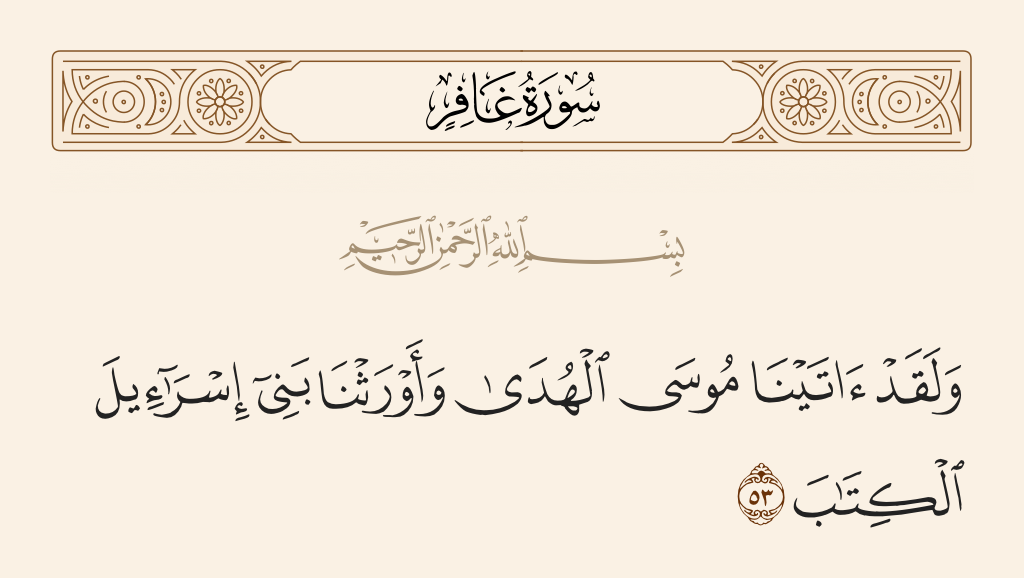 سُورَةُ غَافِرٍ
بِسْمِ ٱللَّهِ ٱلرَّحْمَٰنِ ٱلرَّحِيمِ
وَلَقَدْ ءَاتَيْنَا مُوسَى ٱلْهُدَىٰ وَأَوْرَثْنَا بَنِىٓ إِسْرَٰٓءِيلَ
ٱلْكِتَٰبَ ٥٣